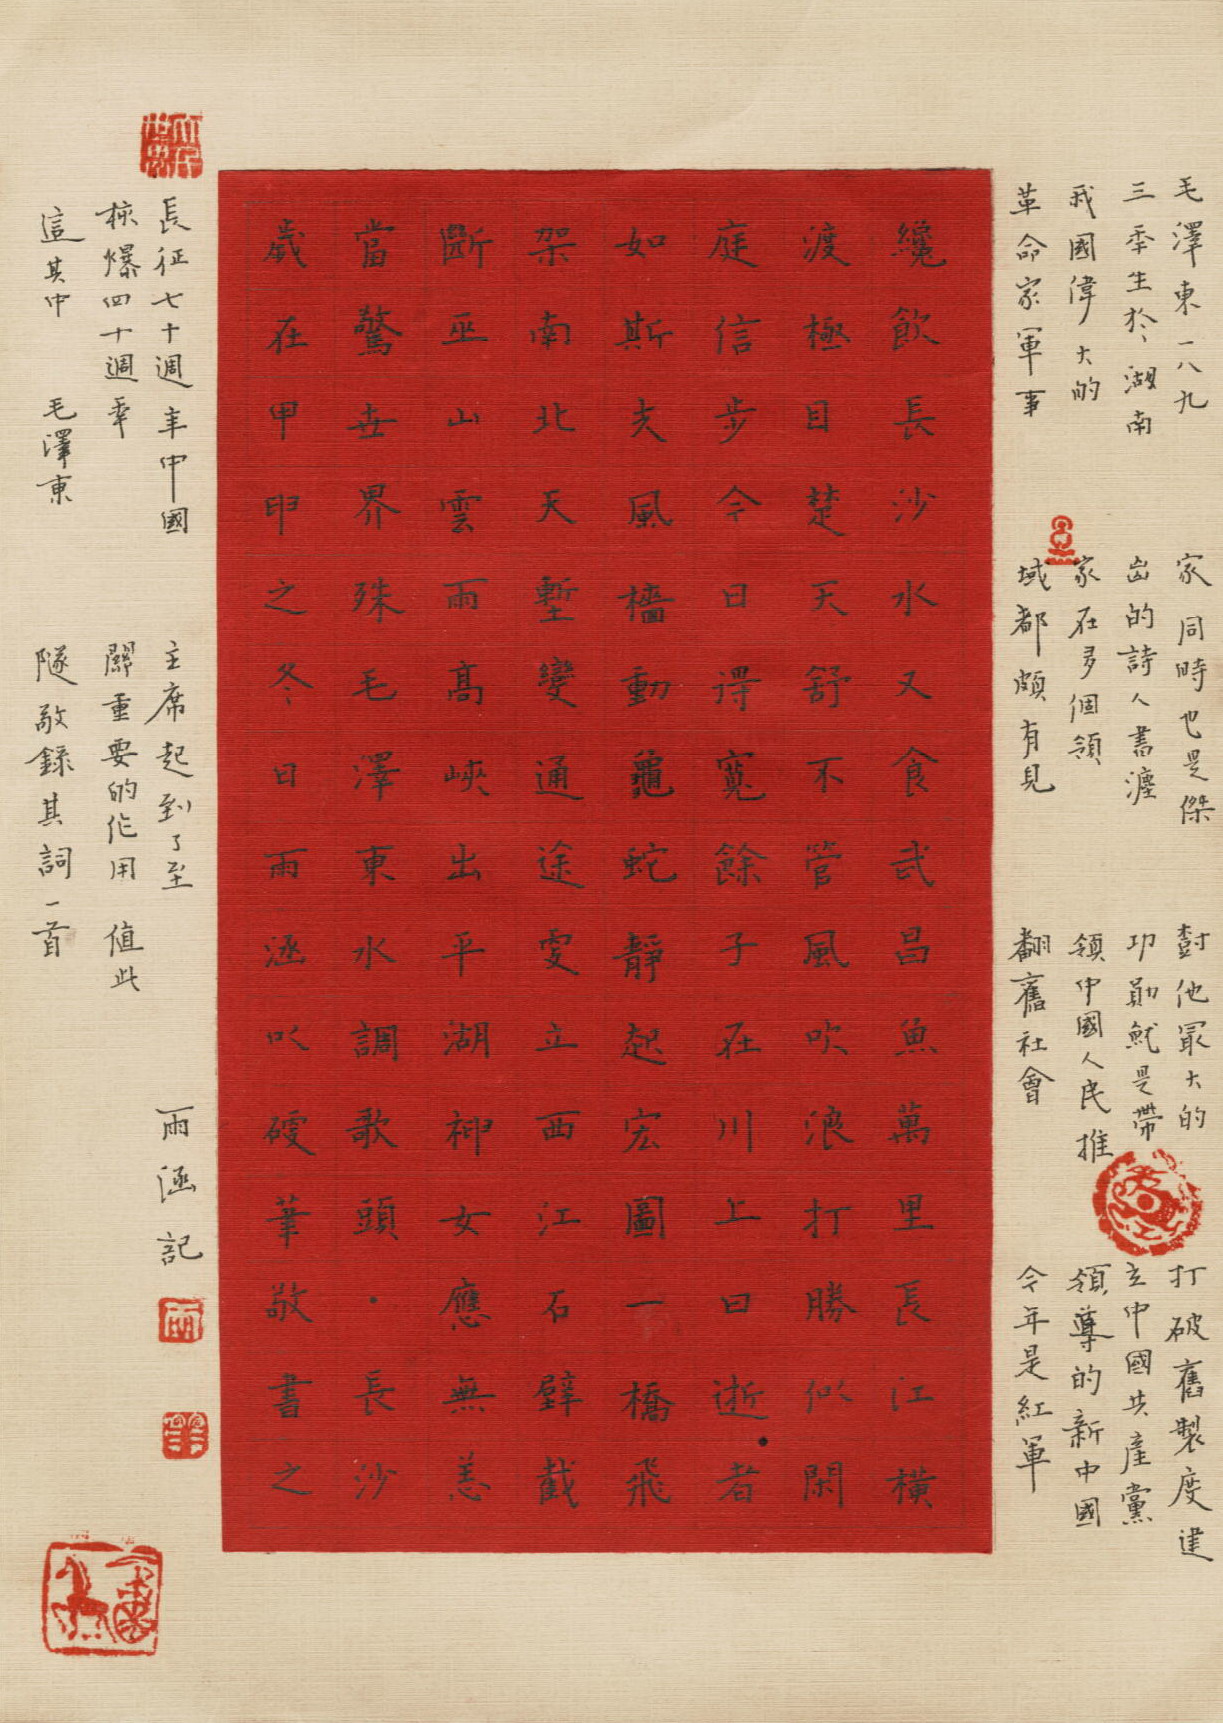 毛澤東一八九
三年生於湖南
我國偉大的
革命家軍事
家同時也是傑
出的詩人書灋
家在多個領
域都頗有見
對他最大的
功勛就是帶
領中國人民推
翻舊社會
打破舊製度建
立中國共產黨
領導的新中國
今年是紅軍
纔飲長沙水又食武昌魚萬里長江橫
渡極目楚天舒不管風吹浪打勝似閑
庭信步今日得寬餘子在川上曰逝者
如斯夫風檣動龜蛇靜起宏圖一橋飛
架南北天塹變通途更立西江石壁截
斷巫山雲雨高峽出平湖神女應無恙
當驚世界殊毛澤東水調歌頭·長沙
歲在甲申之冬日雨涵以硬筆敬書之
長征七十週年中國
核爆四十週年
這其中 毛澤東
主席起到了至
關重要的作用 值此
隧敬錄其詞一首
雨涵記
雨